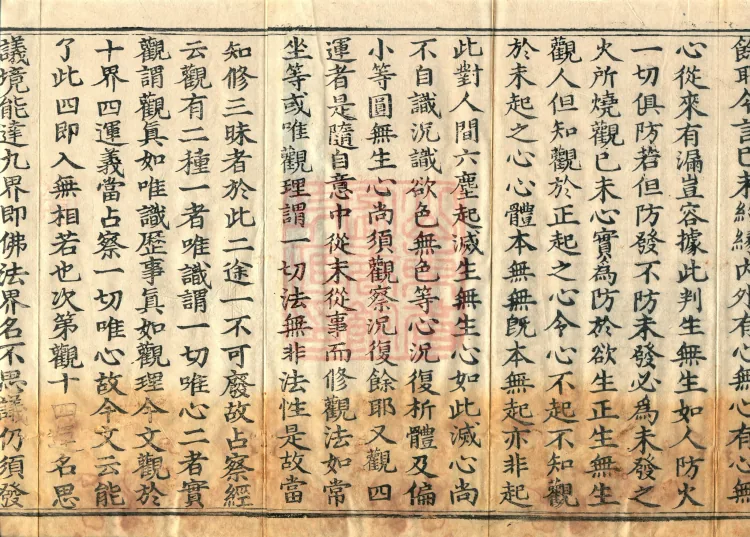 心從來有漏豈容據此判生無生如人防火
一切俱防若但防發不防未發必為未發之
火所燒觀已未心實為防於欲生正生無生
觀人但知觀於正起之心令心不起不知觀
於未起之心心體本無無既本無起亦非起
此對人間六塵起滅生無生心如此滅心尚
不自識況識欲色無色等心況復析體及偏
小等圓無生心尚須觀察況復餘耶又觀四
運者是隨自意中從末從事而修觀法如常
坐等或唯觀理謂一切法無非法性是故當
知修三昧者於此二途一不可廢故占察經
云觀有二種一者唯識謂一切唯心二者實
觀謂觀真如唯識歷事真如觀理今文觀於
十界四運義當占察一切唯心故今文云能
了此四即入無相若也次第觀十 名思
議境能達九界即佛法界名不思議仍須發